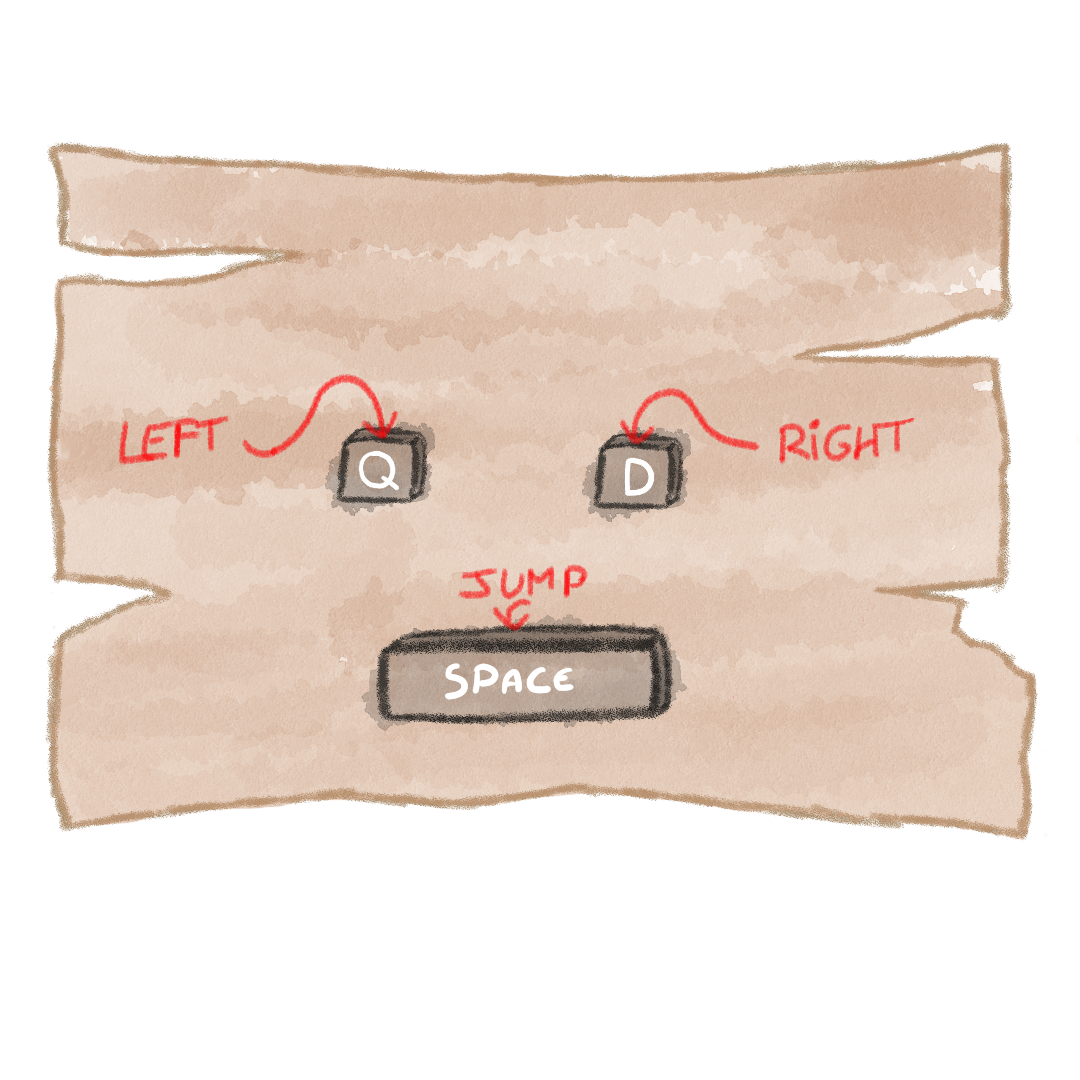 LEFT Q D RiGHT
JUMP
SPACE